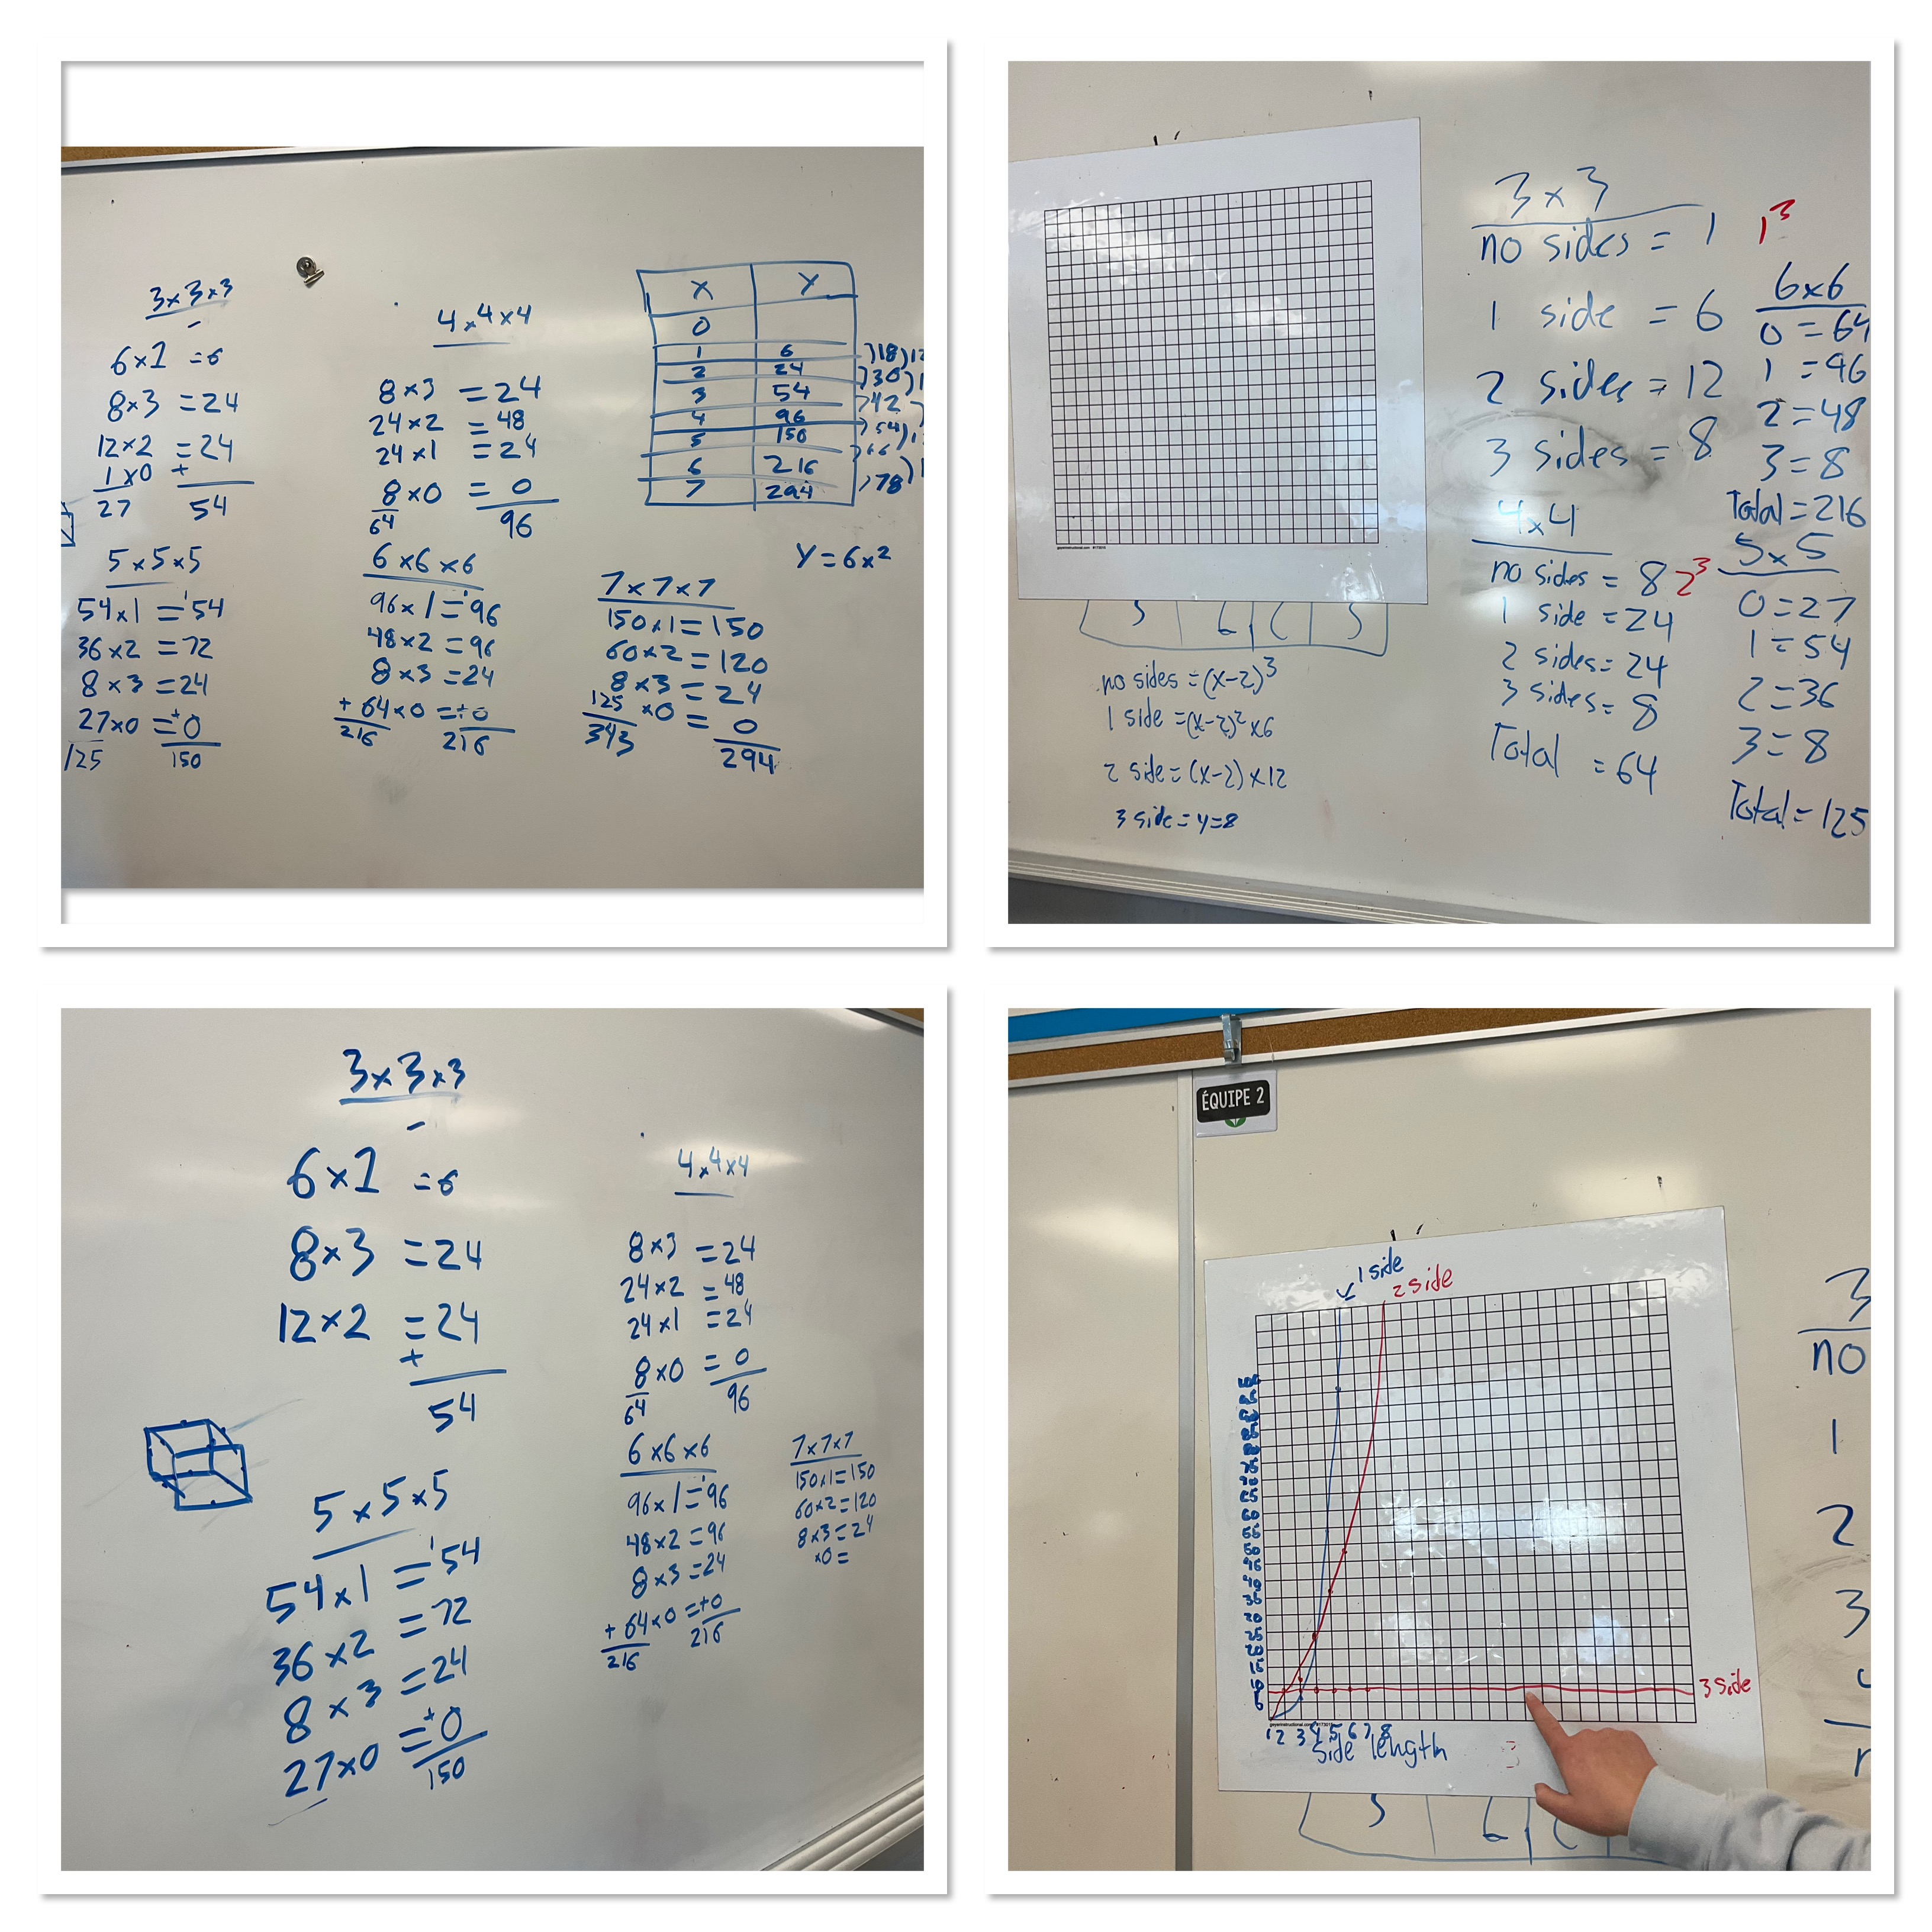 3x3x3
6x1 =6
8x3 =24
12x2 =24
1x0 +
27 54
5x5x5
54x1=54
36x2=72
8x3=24
27x0=+0
125 150
4x4x4
8x3 =24
24x2 =48
24x1 =24
8x0 = 0
64 96
6x6x6
96x1=96
48x2=96
8x3=24
+64x0=+0
216 216
7x7x7
150x1=150
60x2=120
8x3=24
125x0= 0
343 294
X Y
0
1 6 )18)
2 24 )30)
3 54 )42
4 96 )54)
5 150 )66)
6 216 )78)
7 294
Y=6x²
3x3
no sides = 1 1³
1 side = 6
2 sides = 12
3 sides = 8
4x4
no sides = 8 2³
1 side = 24
2 sides = 24
3 sides = 8
Total = 64
6x6
0=64
1=96
2=48
3=8
Total=216
5x5
0=27
1=54
2=36
3=8
Total=125
no sides=(x-2)³
1 side=(x-2)²x6
2 side=(x-2)x12
3 side=y=8
3x3x3
6x1 =6
8x3 =24
12x2 =24
+
54
5x5x5
54x1=54
36x2=72
8x3=24
27x0=+0
150
4x4x4
8x3 =24
24x2 =48
24x1 =24
8x0 = 0
64 96
6x6x6
96x1=96
48x2=96
8x3=24
+64x0=+0
216 216
7x7x7
150x1=150
60x2=120
8x3=24
x0=
ÉQUIPE 2
1 side
2 side
3 side
1 2 3 4 5 6 7 8
Side length
3
no
1
2
3